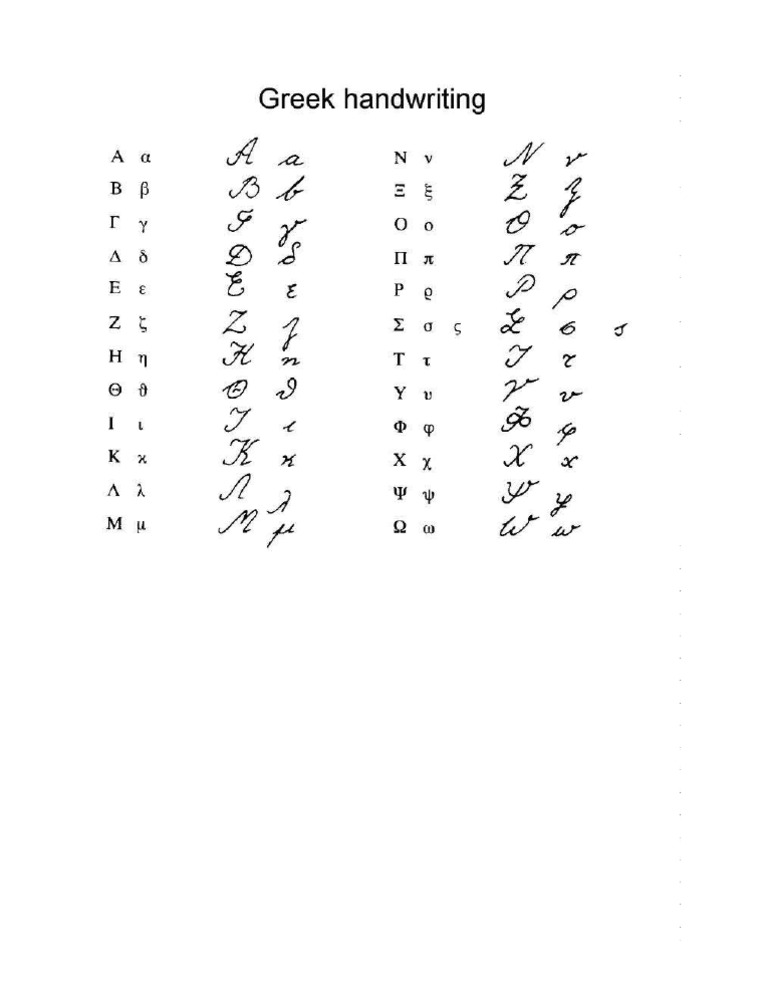 Greek handwriting
Α α Α α Ν ν Ν ν
Β β Β β Ξ ξ Ξ ξ
Γ γ Γ γ Ο ο Ο ο
Δ δ Δ δ Π π Π π
Ε ε Ε ε Ρ ϱ Ρ ρ
Ζ ζ Ζ ζ Σ σ ς Σ σ ς
Η η Η η Τ τ Τ τ
Θ ϑ Θ ϑ Υ υ Υ υ
Ι ι Ι ι Φ φ Φ φ
Κ ϰ Κ ϰ Χ χ Χ χ
Λ λ Λ λ Ψ ψ Ψ ψ
Μ μ Μ μ Ω ω Ω ω